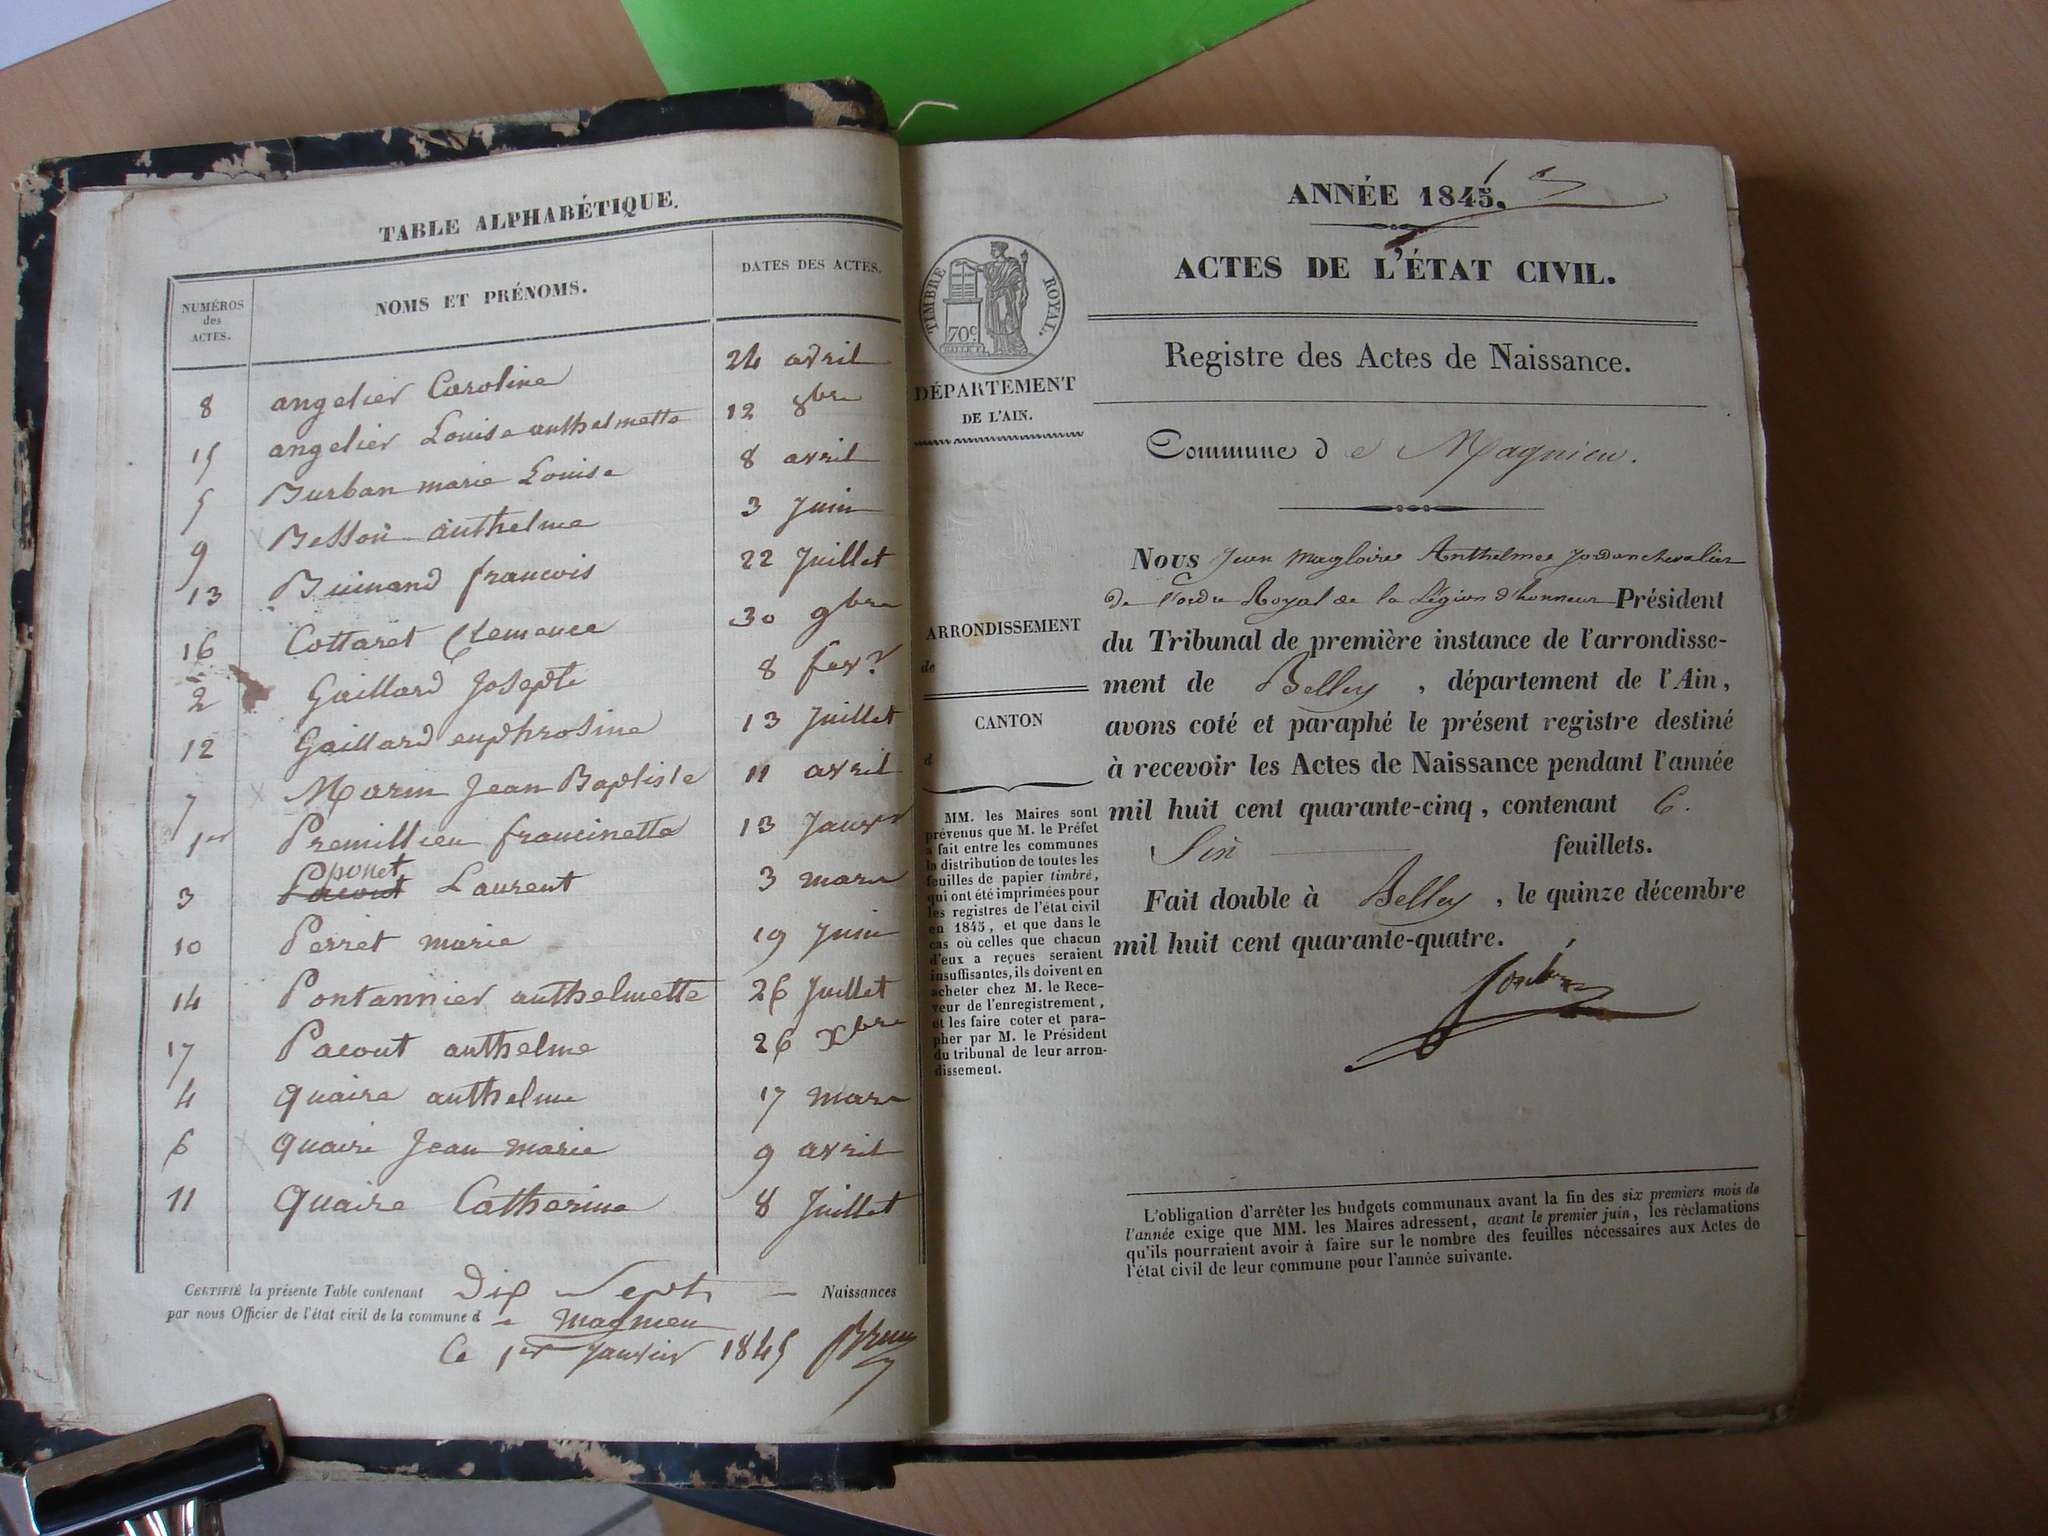 TABLE ALPHABÉTIQUE.
NUMÉROS des ACTES. NOMS ET PRÉNOMS. DATES DES ACTES.
8 angelier Caroline 24 avril
15 angelier Louise anthelmette 12 8bre
5 Burban marie Louise 8 avril
9 Besson anthelme 3 Juin
13 Buinand francois 22 Juillet
16 Cottaret Clemence 30 9bre
2 Gaillard Josephte 8 fevr
12 Gaillard euphrosine 13 Juillet
7 Marin Jean Baptiste 11 avril
1er Premillieu francinette 13 Janvr
3 Pacout Poponet Laurent 3 mars
10 Perret marie 19 Juin
14 Pontannier anthelmette 26 Juillet
17 Pacout anthelme 26 Xbre
4 Quaire anthelme 17 mars
6 Quaire Jean marie 9 avril
11 Quaire Catherine 8 Juillet
CERTIFIÉ la présente Table contenant Dix Sept Naissances
par nous Officier de l'état civil de la commune de Magnieu
Ce 1er Janvier 1845
ANNÉE 1845.
ACTES DE L'ÉTAT CIVIL.
Registre des Actes de Naissance.
TIMBRE ROYAL.
70c
DÉPARTEMENT
DE L'AIN.
ARRONDISSEMENT
de
CANTON
d
MM. les Maires sont
prévenus que M. le Préfet
a fait entre les communes
la distribution de toutes les
feuilles de papier timbré,
qui ont été imprimées pour
les registres de l'état civil
en 1845, et que dans le
cas où celles que chacun
d'eux a reçues seraient
insuffisantes, ils doivent en
acheter chez M. le Rece-
veur de l'enregistrement,
et les faire coter et para-
pher par M. le Président
du tribunal de leur arron-
dissement.
Commune de Magnieu.
NOUS Jean Magloire Anthelme Jordan chevalier
de l'ordre Royal de la Légion d'honneur Président
du Tribunal de première instance de l'arrondisse-
ment de Belley, département de l'Ain,
avons coté et paraphé le présent registre destiné
à recevoir les Actes de Naissance pendant l'année
mil huit cent quarante-cinq, contenant 6.
Six feuillets.
Fait double à Belley, le quinze décembre
mil huit cent quarante-quatre.
Jordan
L'obligation d'arrêter les budgets communaux avant la fin des six premiers mois de
l'année exige que MM. les Maires adressent, avant le premier juin, les réclamations
qu'ils pourraient avoir à faire sur le nombre des feuilles nécessaires aux Actes de
l'état civil de leur commune pour l'année suivante.